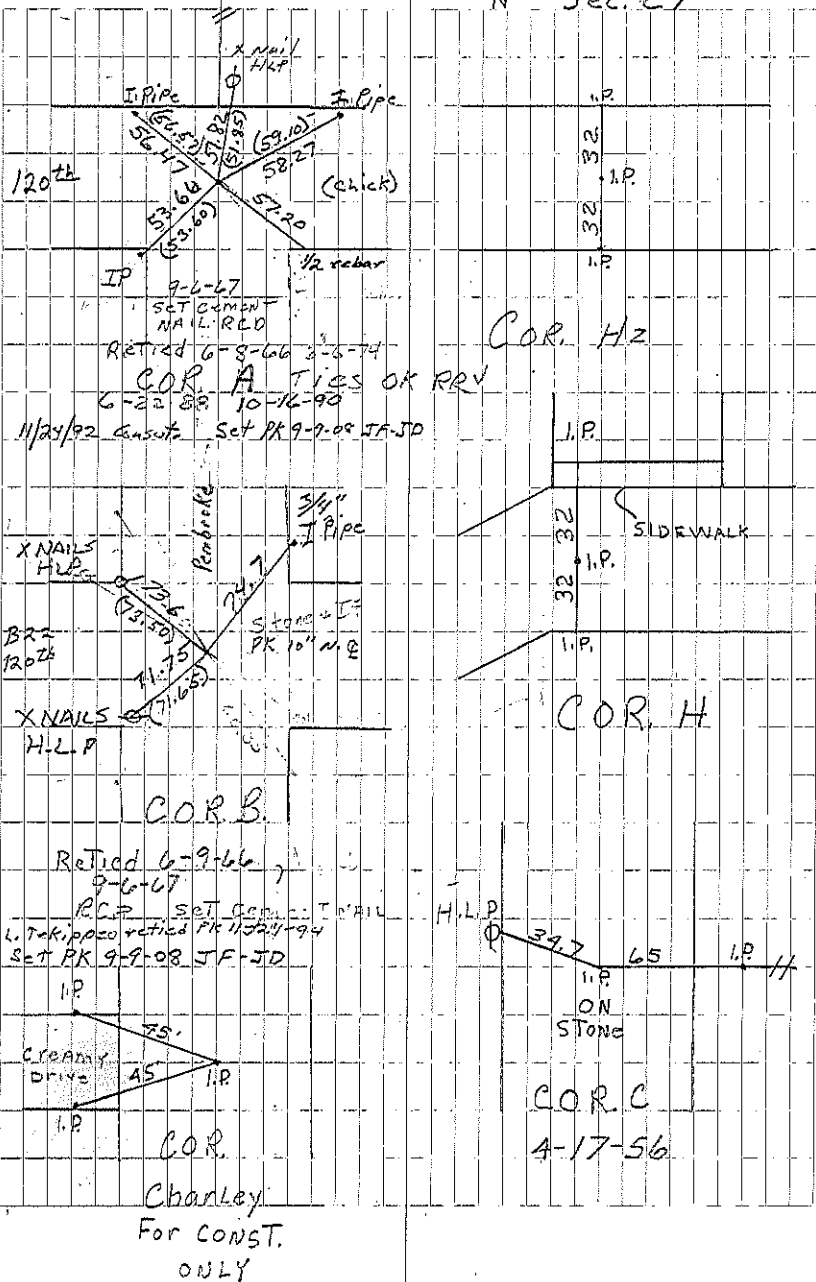 N Sec. 27
X Nail
HLP
I. Pipe
I. Pipe
(56.57)
56.47
51.82
(51.85)
(59.10)
58.27
120th
(chick)
53.66
(53.60)
57.20
IP
1/2 rebar
9-6-67
SET CEMENT
NAIL RCD
ReTied 6-8-66 3-6-74
COR. A Ties OK RRV
6-22-88 10-16-90
11/24/92 Set PK 9-9-08 JF-JD
Pembroke
3/4"
I Pipe
X NAILS
HLP
73.6
(73.50)
74.7
Stone + IP
PK 10" N. ℄
B22
120th
71.75
(71.65)
X NAILS
H.L.P
COR. B.
ReTied 6-9-66
9-6-67
RCD SET Cement NAIL
L. Tekippeo retied PK 11-24-94
Set PK 9-9-08 JF-JD
I.P.
75'
Creamy
Drive
45
I.P.
I.P.
COR.
Chanley
For CONST.
ONLY
I.P.
32
I.P.
32
I.P.
COR. H2
I.P.
SIDEWALK
32
I.P.
32
I.P.
COR. H
H.L.P
39.7
65
I.P.
I.P.
ON
STONE
COR. C
4-17-56